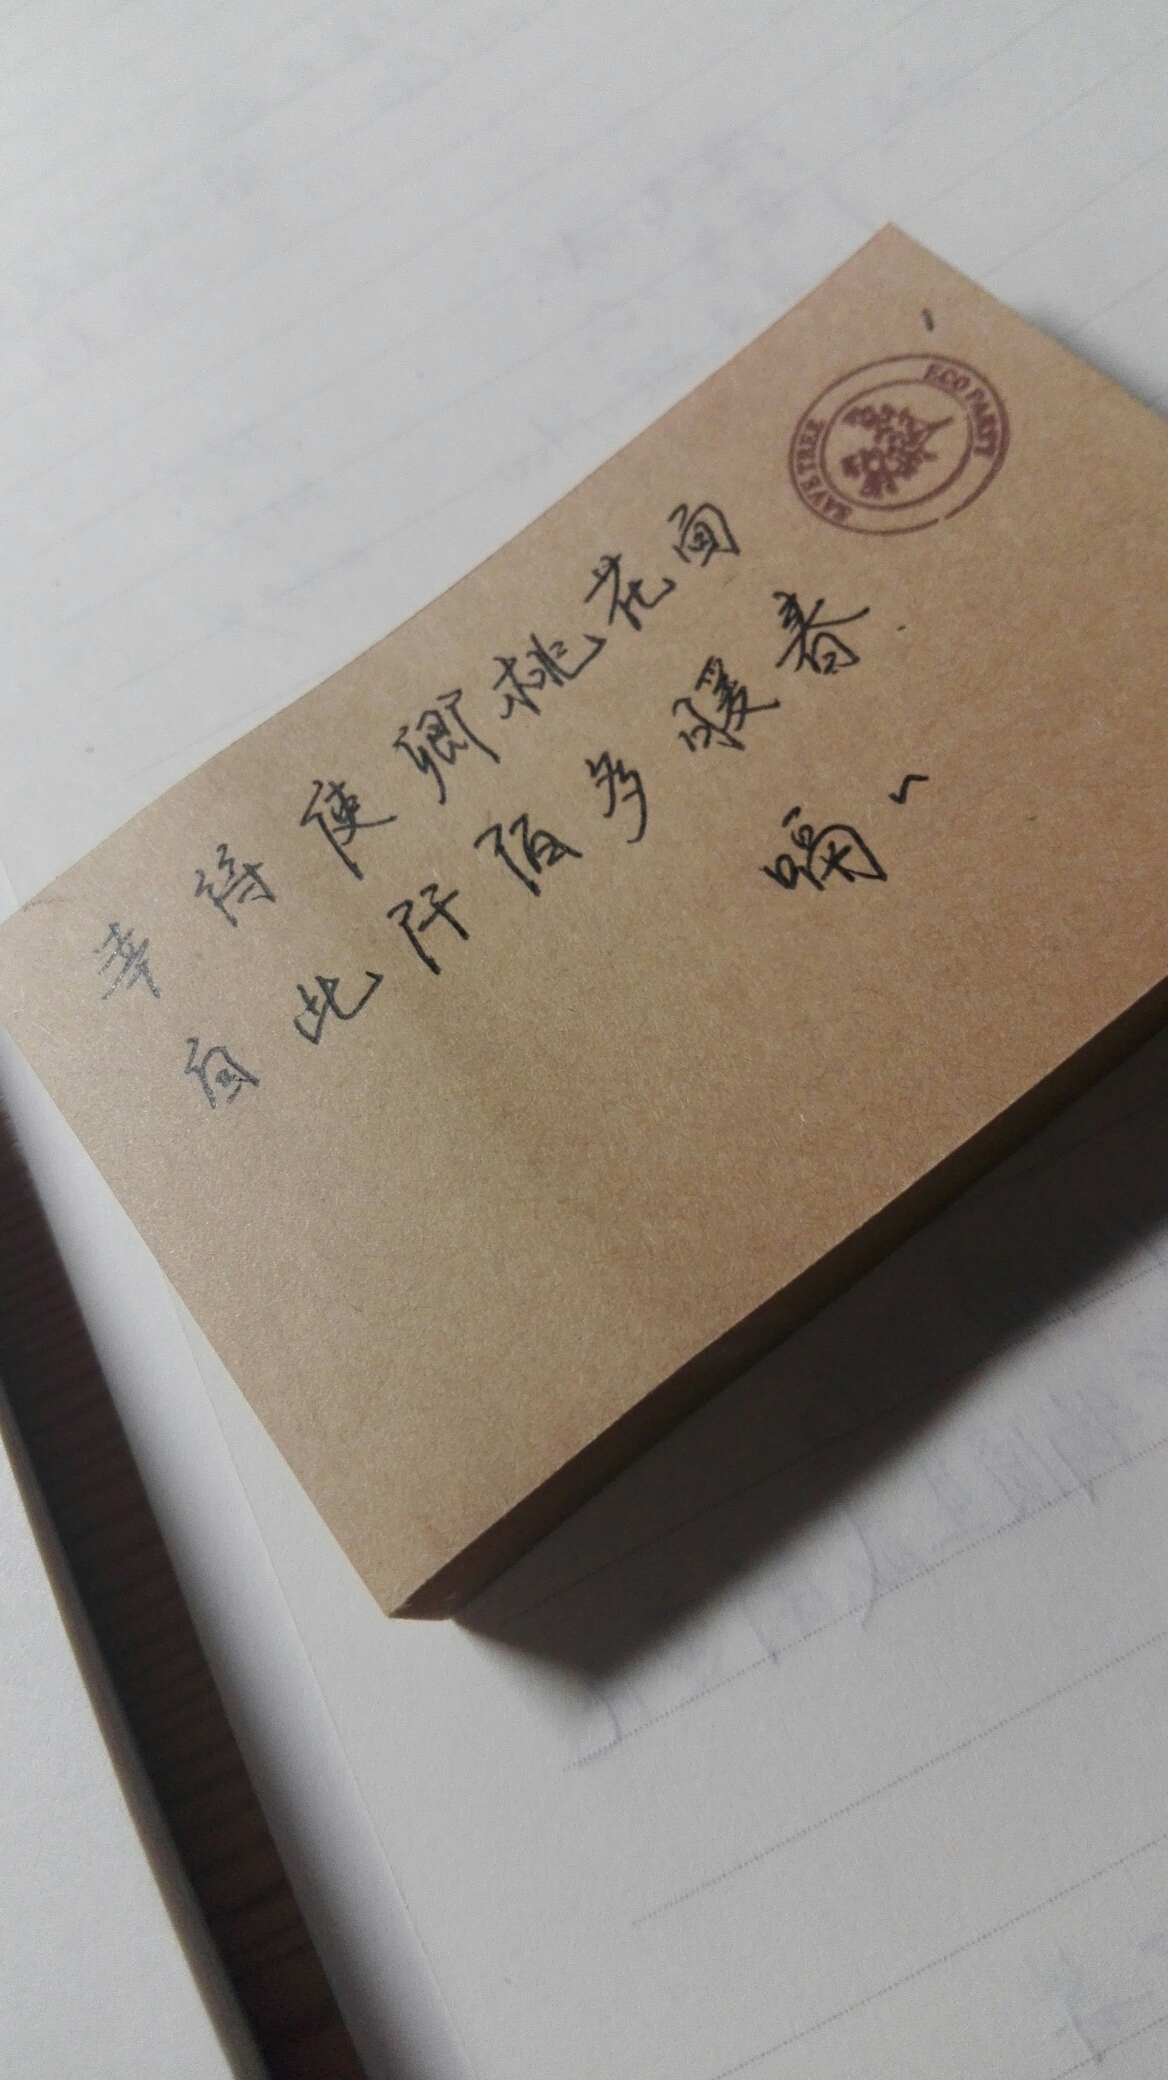 ECO PARTY
SAVE TREE
幸得使卿桃花面
自此阡陌多暖春
嗝~